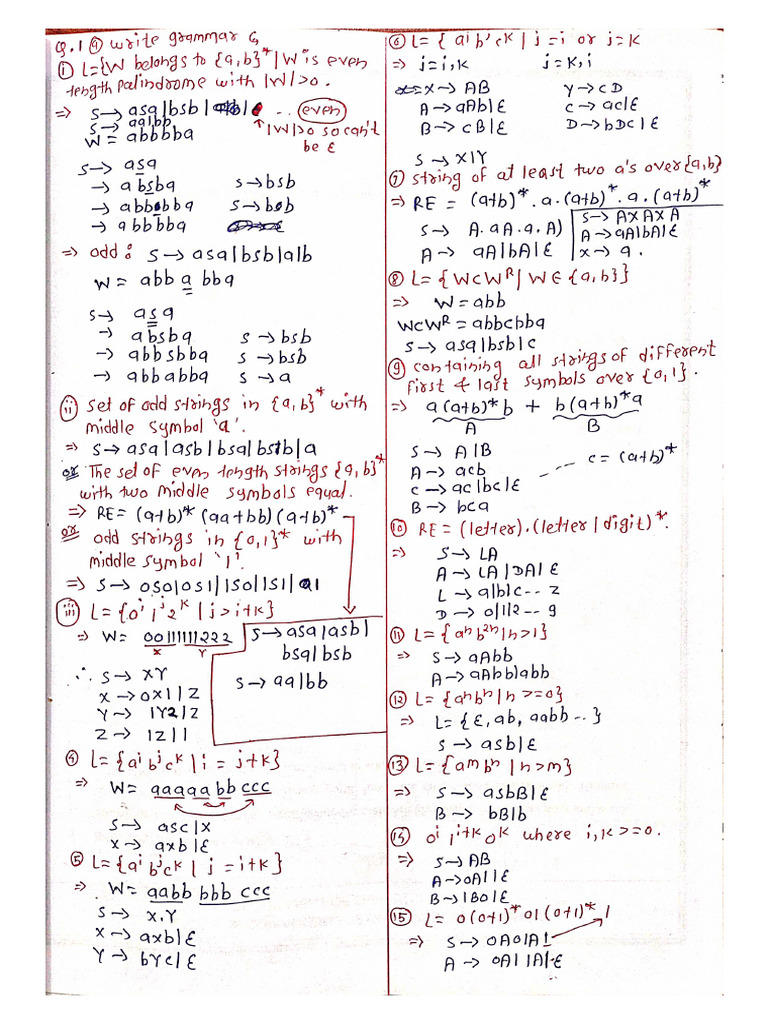 Q.1 (a) write grammar G
(i) L={W belongs to {a,b}* | W is even
length palindrome with |W|>0.
⇒ S→ asa|bsb| .. even
S→ aa|bb
W = abbbba
↑|W|>0 so can't
be ε
S→ asa
→ absba S→bsb
→ abbsbba S→bsb
→ abbbba
⇒ odd: S→ asa|bsb|a|b
W = abb a bba
S→ asa
→ absba S→bsb
→ abbsbba S→bsb
→ abbabba S→a
(ii) set of odd strings in {a,b}* with
middle symbol 'a'.
⇒ S→ asa|asb|bsa|bsb|a
or The set of even length strings {a,b}*
with two middle symbols equal.
⇒ RE= (a+b)* (aa+bb)(a+b)*
or odd strings in {0,1}* with
middle symbol '1'.
⇒ S→ 0S0|0S1|1S0|1S1|1
S→asa|asb|
bsa|bsb
S→ aa|bb
(iii) L={0^i 1^j 2^k | j>i+k}
⇒ W= 00111111222
X Y
∴ S→ XY
X→0X1|Z
Y→ 1Y2|Z
Z→ 1Z|1
(4) L={a^i b^j c^k | i = j+k}
⇒ W= aaaaa bb ccc
S→ asc|X
X→ axb|ε
(5) L={a^i b^j c^k | j = i+k}
⇒ W= aabb bbb ccc
S→ X.Y
X→ axb|ε
Y→ bYc|ε
(6) L={ a^i b^j c^k | j=i or j=k
⇒ j=i,k j=k,i
X→ AB Y→ CD
A→ aAb|ε C→ ac|ε
B→ cB|ε D→ bDc|ε
S→ X|Y
(7) string of at least two a's over {a,b}
⇒ RE = (a+b)*.a.(a+b)*.a.(a+b)*
S→ A.aA.a.A) S→ AXAXA
A→ aA|bA|ε A→aA|bA|ε
X→ a.
(8) L={WCW^R | W∈{a,b}}
⇒ W=abb
WCW^R = abbcbba
S→ asa|bsb|c
(9) containing all strings of different
first & last symbols over {0,1}.
⇒ a(a+b)*b + b(a+b)*a
A B
S→ A|B
A→ acb C=(a+b)*
C→ ac|bc|ε
B→ bca
(10) RE=(letter).(letter|digit)*.
⇒ S→ LA
A→ LA|DA|ε
L→ a|b|c.. z
D→ 0|1|2-- 9
(11) L={a^n b^2n | n>1}
⇒ S→ aAbb
A→ aAbb|abb
(12) L={a^n b^n | n>=0}
⇒ L={ε, ab, aabb..}
S→ asb|ε
(13) L={a^m b^n | n>m}
⇒ S→ asbB|ε
B→ bB|b
(14) 0^i 1^i+k 0^k where i,k>=0.
⇒ S→AB
A→0A1|ε
B→1B0|ε
(15) L= 0(0+1)*01(0+1)* 1
⇒ S→ 0A01A1
A→ 0A|1A|ε